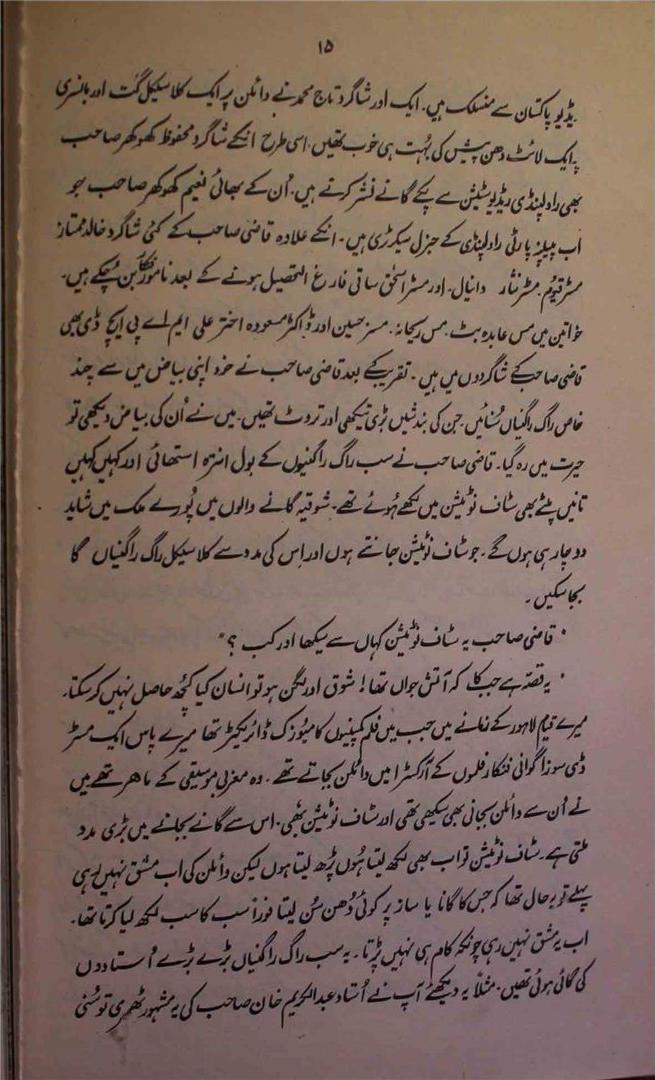 ۱۵
یڈیو پاکستان سے منسلک ہیں۔ ایک اور شاگرد تاج محمد نے وائلن پہ ایک کلاسیکل گت اور بانسری
پہ ایک لائٹ دھن پیش کی بہت ہی خوب تھیں۔ اسی طرح انکے شاگرد محفوظ کھوکھر صاحب
بھی راولپنڈی ریڈیو سٹیشن سے پکے گانے نشر کرتے ہیں۔ اُن کے بھائی نعیم کھوکھر صاحب جو
اب پیپلز پارٹی راولپنڈی کے جنرل سیکرٹری ہیں۔ انکے علاوہ قاضی صاحب کے کئی شاگرد خالد ممتاز
مسٹر قیوم۔ مسٹر نثار دانیال۔ اور مسٹر اسحٰق ساتی فارغ التحصیل ہونے کے بعد نامور فنکار بن چکے ہیں۔
خواتین میں مس عابدہ بٹ۔ مس ریحانہ۔ مسز حسین اور ڈاکٹر مسعودہ اختر علی ایم اے پی ایچ ڈی بھی
قاضی صاحب کے شاگردوں میں ہیں۔ تقریر کے بعد قاضی صاحب نے خود اپنی بیاض میں سے چند
خاص راگ راگنیاں سُنائیں۔ جن کی بندشیں بڑی تیکھی اور تروٹ تھیں۔ میں نے اُن کی بیاض دیکھی تو
حیرت میں رہ گیا۔ قاضی صاحب نے سب راگ راگنیوں کے بول انترہ استھائی اور کہیں کہیں
تانیں پلٹے بھی سٹاف نوٹیشن میں لکھے ہُوئے تھے۔ شوقیہ گانے والوں میں پُورے ملک میں شاید
دو چار ہی ہوں گے۔ جو سٹاف نوٹیشن جانتے ہوں اور اِس کی مدد سے کلاسیکل راگ راگنیاں گا
بجا سکیں۔
" قاضی صاحب یہ سٹاف نوٹیشن کہاں سے سیکھا اور کب ؟"
" یہ قصّہ ہے جب کا کہ آتش جواں تھا! شوق اور لگن ہو تو انسان کیا کچھ حاصل نہیں کر سکتا۔
میرے قیام لاہور کے زمانے میں جب میں فلم کمپنیوں کا میوزک ڈائریکٹر تھا میرے پاس ایک مسٹر
ڈی سوزا گوانی فنکار فلموں کے آرکسٹرا میں وائلن بجاتے تھے۔ وہ مغربی موسیقی کے ماہر تھے میں
نے اُن سے وائلن بجانی بھی سیکھی تھی اور سٹاف نوٹیشن بھی۔ اس سے گانے بجانے میں بڑی مدد
ملتی ہے۔ سٹاف نوٹیشن تو اب بھی لکھ لیتا ہُوں پڑھ لیتا ہوں لیکن وائلن کی اب مشق نہیں رہی
پہلے تو یہ حال تھا کہ جس کا گانا یا ساز پر کوئی دُھن سُن لیتا فوراً سب کا سب لکھ لیا کرتا تھا۔
اب یہ مشق نہیں رہی چونکہ کام ہی نہیں پڑتا۔ یہ سب راگ راگنیاں بڑے بڑے اُستادوں
کی گائی ہوئی تھیں۔ مثلاً یہ دیکھئے آپ نے اُستاد عبدالکریم خان صاحب کی یہ مشہور ٹھمری تو سُنی